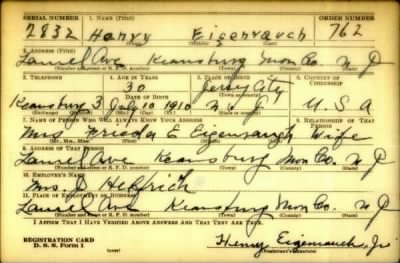 SERIAL NUMBER 1. NAME (Print) ORDER NUMBER
2832 Henry Eigenrauch 762
(First) (Middle) (Last)
2. ADDRESS (Print)
Laurel Ave Keansburg Mon Co. N J
(Number and street or R. F. D. number) (Town) (County) (State)
3. TELEPHONE 4. AGE IN YEARS 5. PLACE OF BIRTH 6. COUNTRY OF CITIZENSHIP
30 Jersey City
DATE OF BIRTH
Keansburg 3 July 10 1910 N. J. U. S. A
(Exchange) (Number) (Mo.) (Day) (Yr.) (State or country)
7. NAME OF PERSON WHO WILL ALWAYS KNOW YOUR ADDRESS 8. RELATIONSHIP OF THAT PERSON
Mrs Frieda E Eigenrauch Wife
(Mr., Mrs., Miss) (First) (Middle) (Last)
9. ADDRESS OF THAT PERSON
Laurel Ave Keansburg Mon Co. N J
(Number and street or R. F. D. number) (Town) (County) (State)
10. EMPLOYER'S NAME
Mrs. D Helfrich
11. PLACE OF EMPLOYMENT OR BUSINESS
Laurel Ave Keansburg Mon Co. N J
(Number and street or R. F. D. number) (Town) (County) (State)
I AFFIRM THAT I HAVE VERIFIED ABOVE ANSWERS AND THAT THEY ARE TRUE.
REGISTRATION CARD
D. S. S. Form 1
Henry Eigenrauch, Jr
(Registrant's signature)